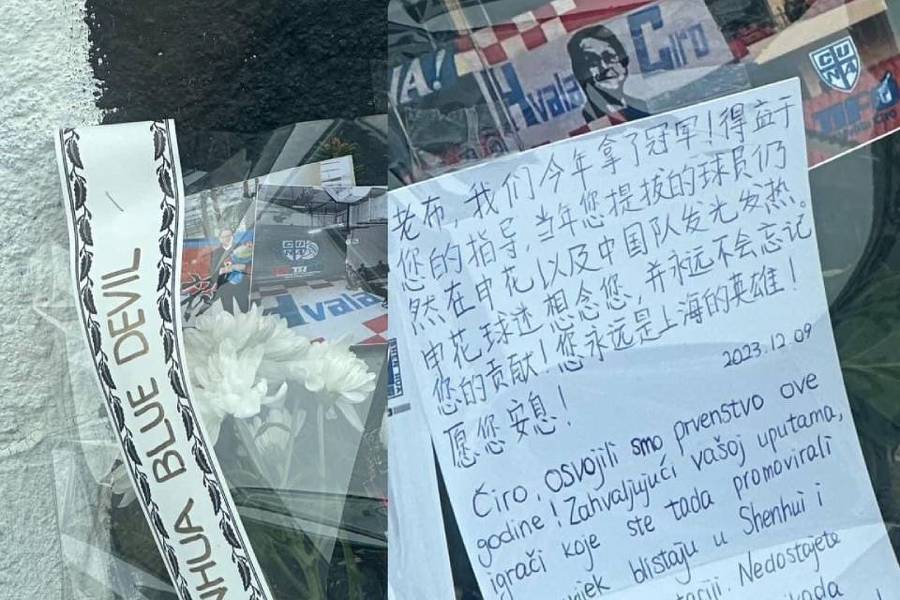 BLUE DEVIL
Hvala
Hvala Ćiro
老布 我们今年拿了冠军！得益于
您的指导，当年您提拔的球员仍
然在申花以及中国队发光发热。
申花球迷想念您，并永远不会忘记
您的贡献！您永远是上海的英雄！
愿您安息！
2023.12.09
Ćiro, osvojili smo prvenstvo ove
godine! Zahvaljujući vašoj uputama,
igrači koje ste tada promovirali
blistaju u Shenhui i
Nedostajete